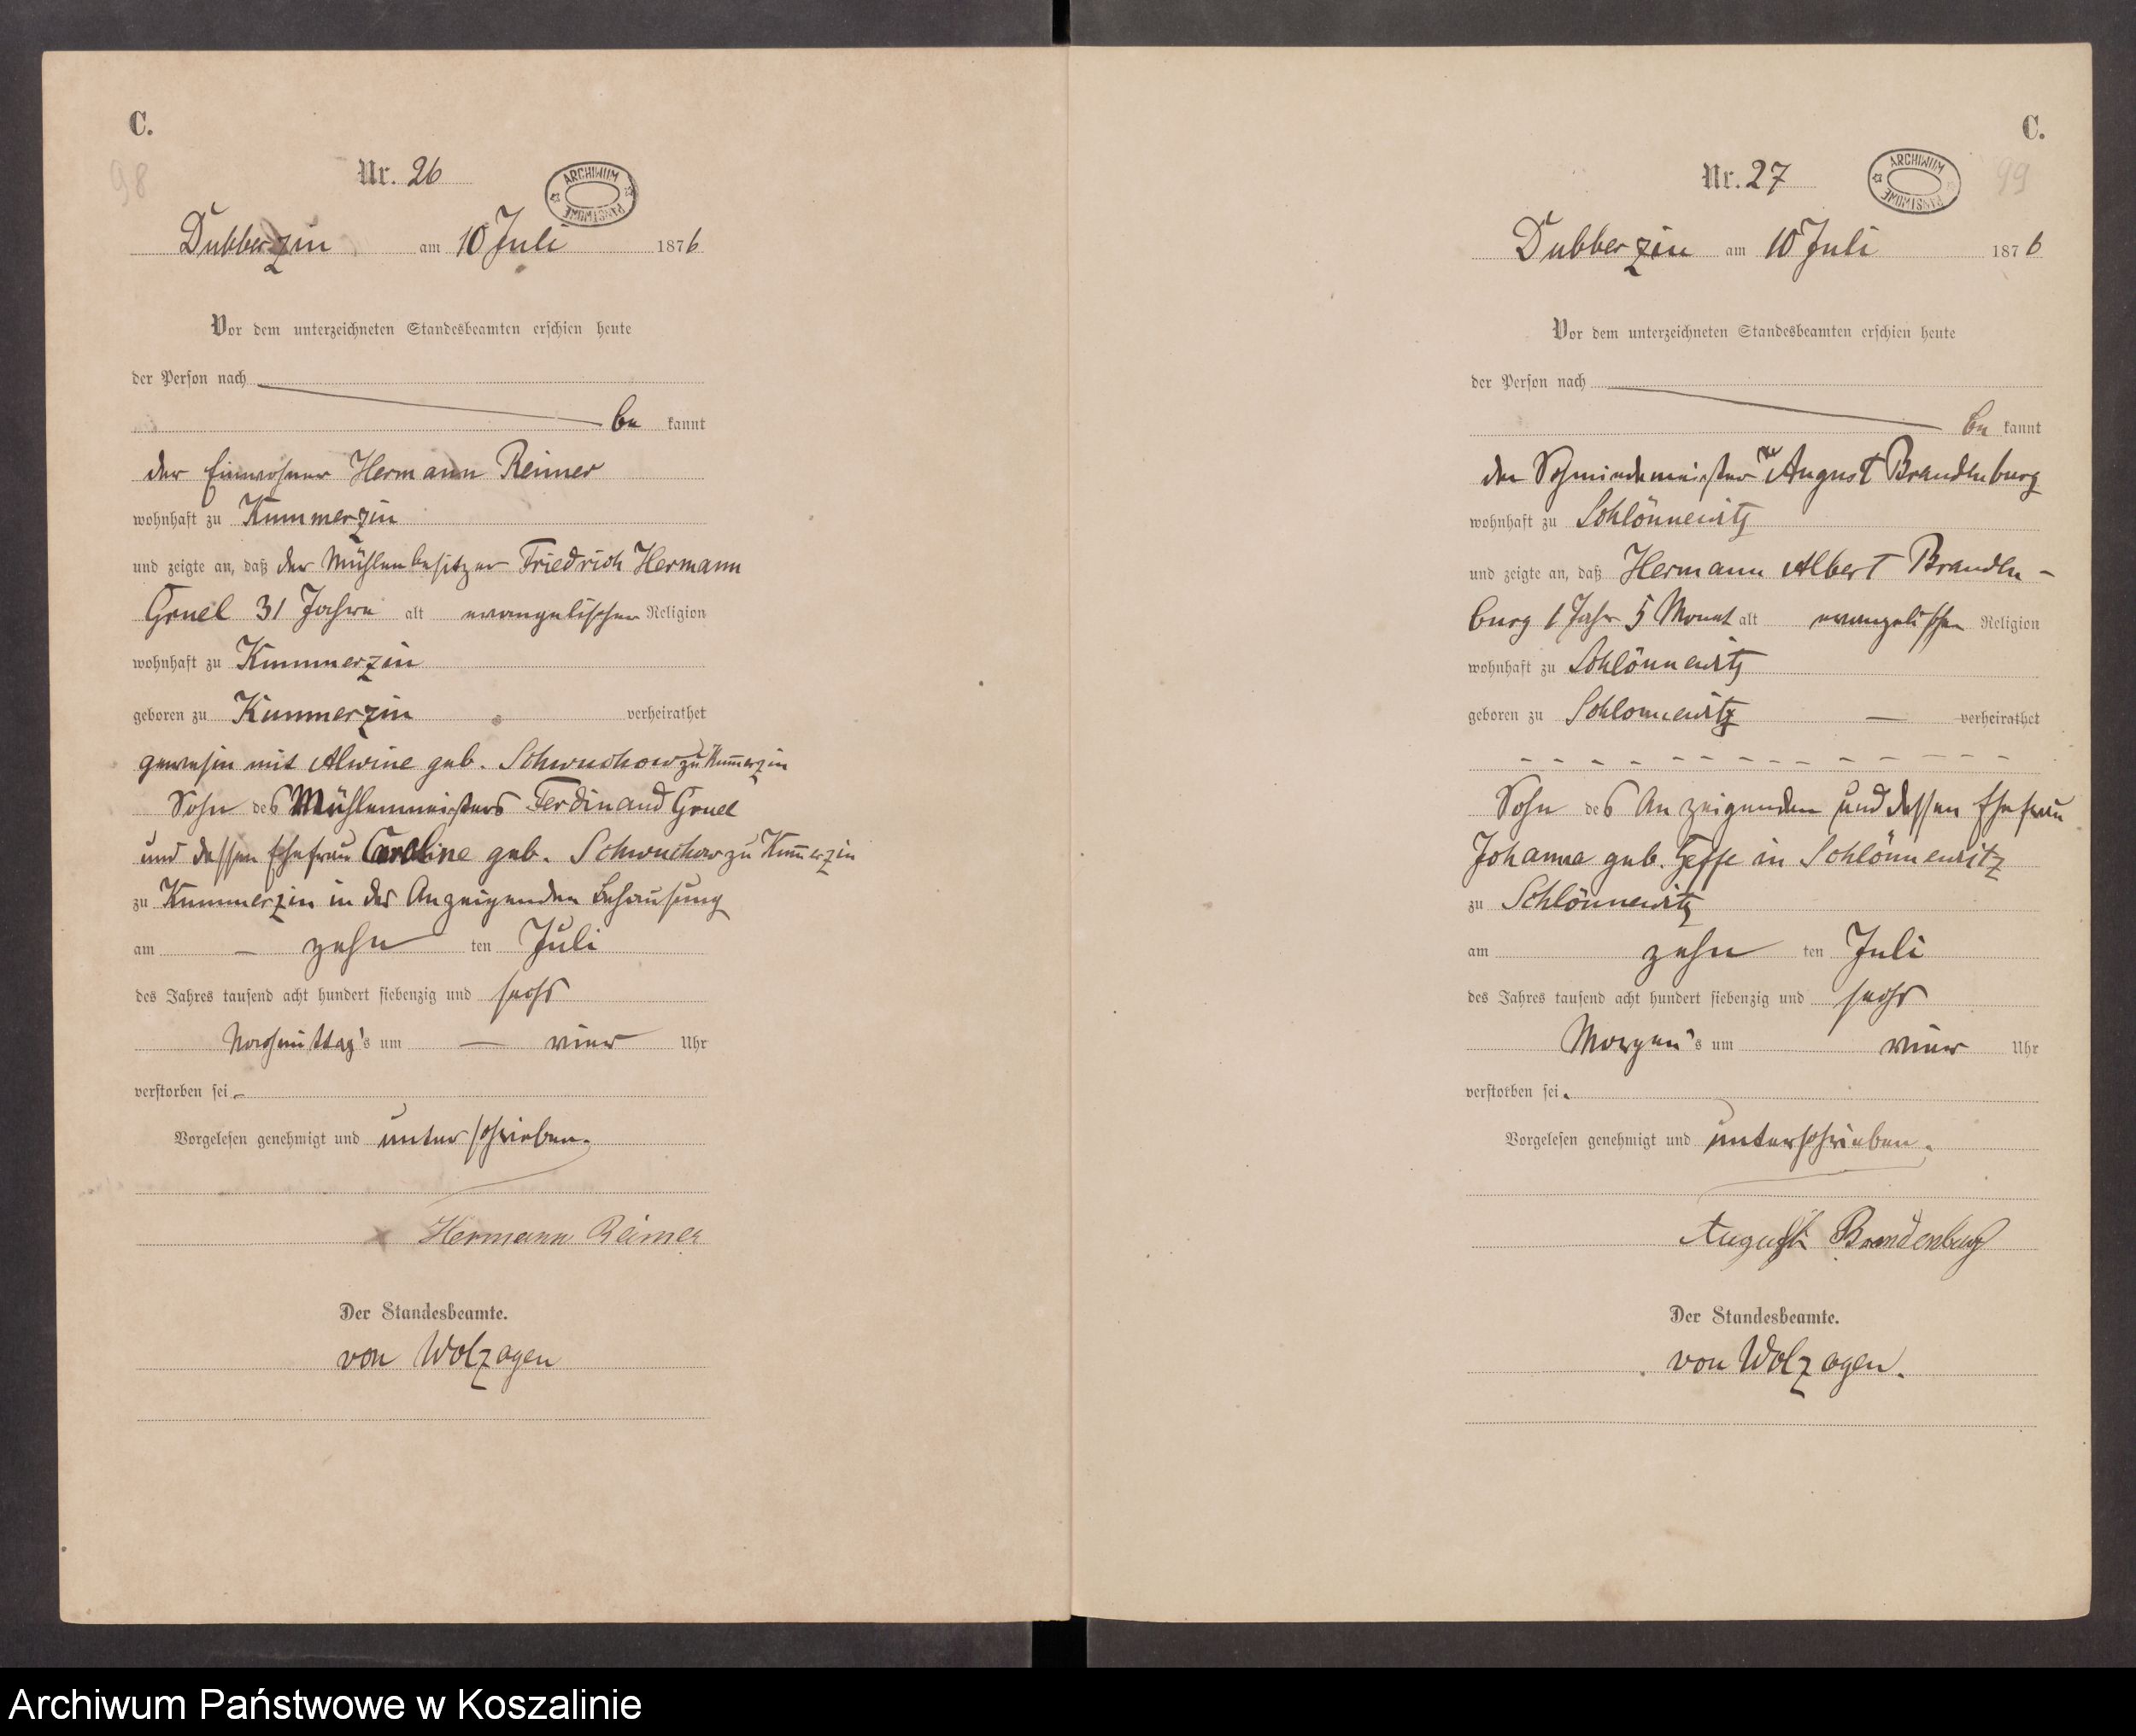 C.
98
Nr. 26
ARCHIWUM PAŃSTWOWE
Dubberzin am 10 Juli 1876
Vor dem unterzeichneten Standesbeamten erschien heute
der Person nach
be kannt
der Einwohner Hermann Reimer
wohnhaft zu Kummerzin
und zeigte an, daß der Mühlenbesitzer Friedrich Hermann
Gruel 31 Jahre alt evangelischer Religion
wohnhaft zu Kummerzin
geboren zu Kummerzin verheirathet
gewesen mit Alwine geb. Schwuchow zu Kum̄erzin
Sohn des Mühlenmeisters Ferdinand Gruel
und dessen Ehefrau Caroline geb. Schwuchow zu Kum̄erzin
zu Kummerzin in des Anzeigenden Behausung
am – zehn ten Juli
des Jahres tausend acht hundert siebenzig und sechs
Nachmittag's um — vier Uhr
verstorben sei
Vorgelesen genehmigt und unterschrieben.
Hermann Reimer
Der Standesbeamte.
von Wolzogen
C.
99
Nr. 27
ARCHIWUM PAŃSTWOWE
Dubberzin am 10 Juli 1876
Vor dem unterzeichneten Standesbeamten erschien heute
der Person nach
be kannt
der Schmiedemeister August Brandenburg
wohnhaft zu Schlönnewitz
und zeigte an, daß Hermann Albert Branden-
burg 1 Jahr 5 Monat alt evangelischer Religion
wohnhaft zu Schlönnewitz
geboren zu Schlonnewitz — verheirathet
Sohn des Anzeigenden und dessen Ehefrau
Johanna geb. in Schlönnewitz
zu Schlönnewitz
am zehn ten Juli
des Jahres tausend acht hundert siebenzig und sechs
Morgen's um vier Uhr
verstorben sei.
Vorgelesen genehmigt und unterschrieben.
August Brandenburg
Der Standesbeamte.
von Wolzogen.
Archiwum Państwowe w Koszalinie